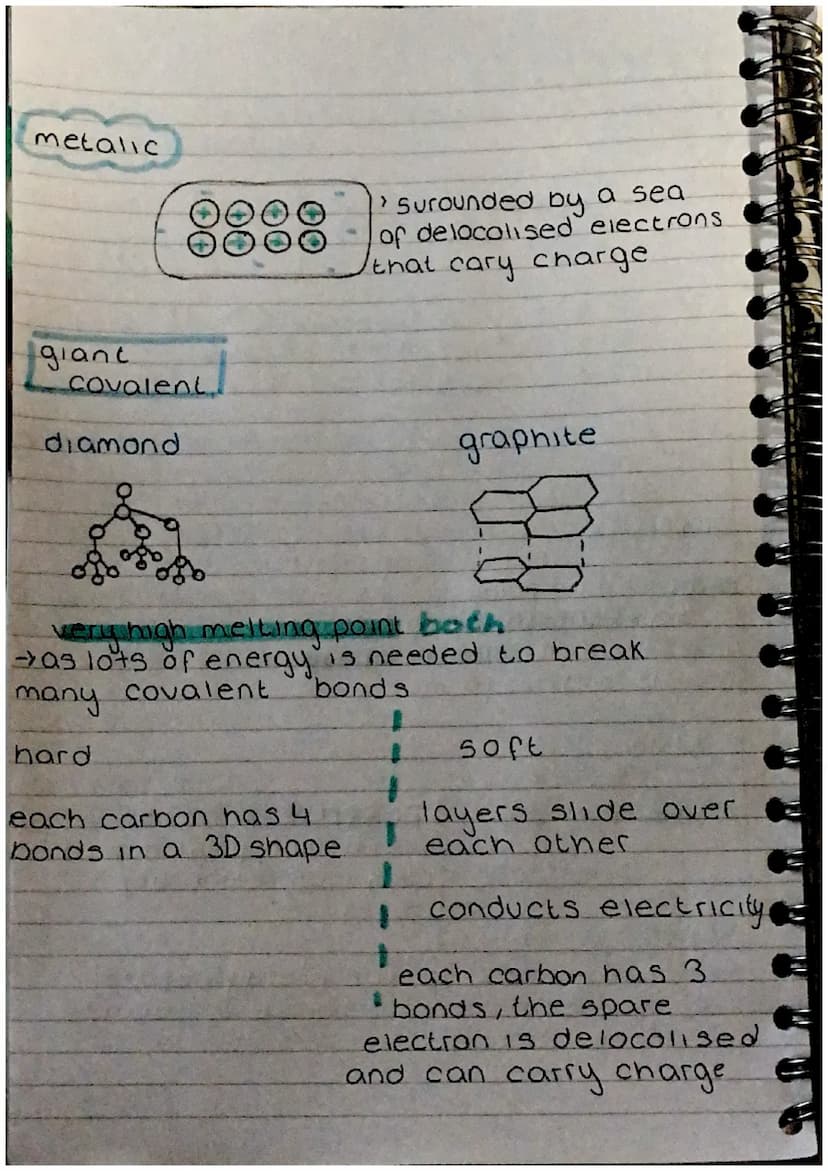 metalic
surounded by a sea
of delocolised electrons
that cary charge
giant
covalent
diamond
graphite
very high melting point both
→as lots of energy is needed to break
many covalent bonds
hard
soft
each carbon has 4
bonds in a 3D shape
layers slide over
each other
conducts electricity
each carbon has 3
bonds, the spare
electron is delocolised
and can carry charge